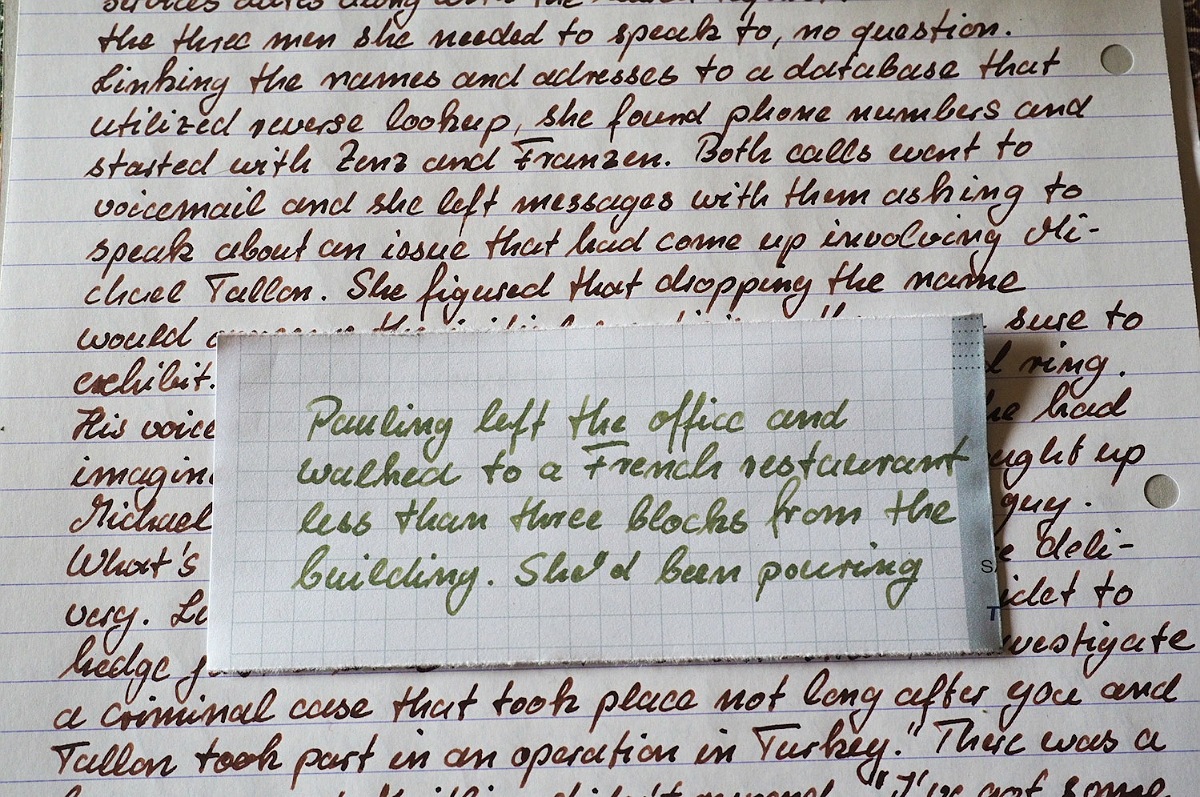 the three men she needed to speak to, no question.
Linking the names and adresses to a database that
utilized reverse lookup, she found phone numbers and
started with Zenz and Franzen. Both calls went to
voicemail and she left messages with them asking to
speak about an issue that had come up involving Mi-
chael Tallon. She figured that dropping the name
would
sure to
exhibit.
ring.
His voice
had
imagin
ught up
Michael
guy.
What's
deli-
very.
to
hedge
Pauling left the office and
walked to a French restaurant
less than three blocks from the
building. She'd been pouring
a criminal case that took place not long after you and
Tallon took part in an operation in Turkey." There was a
"I've got some